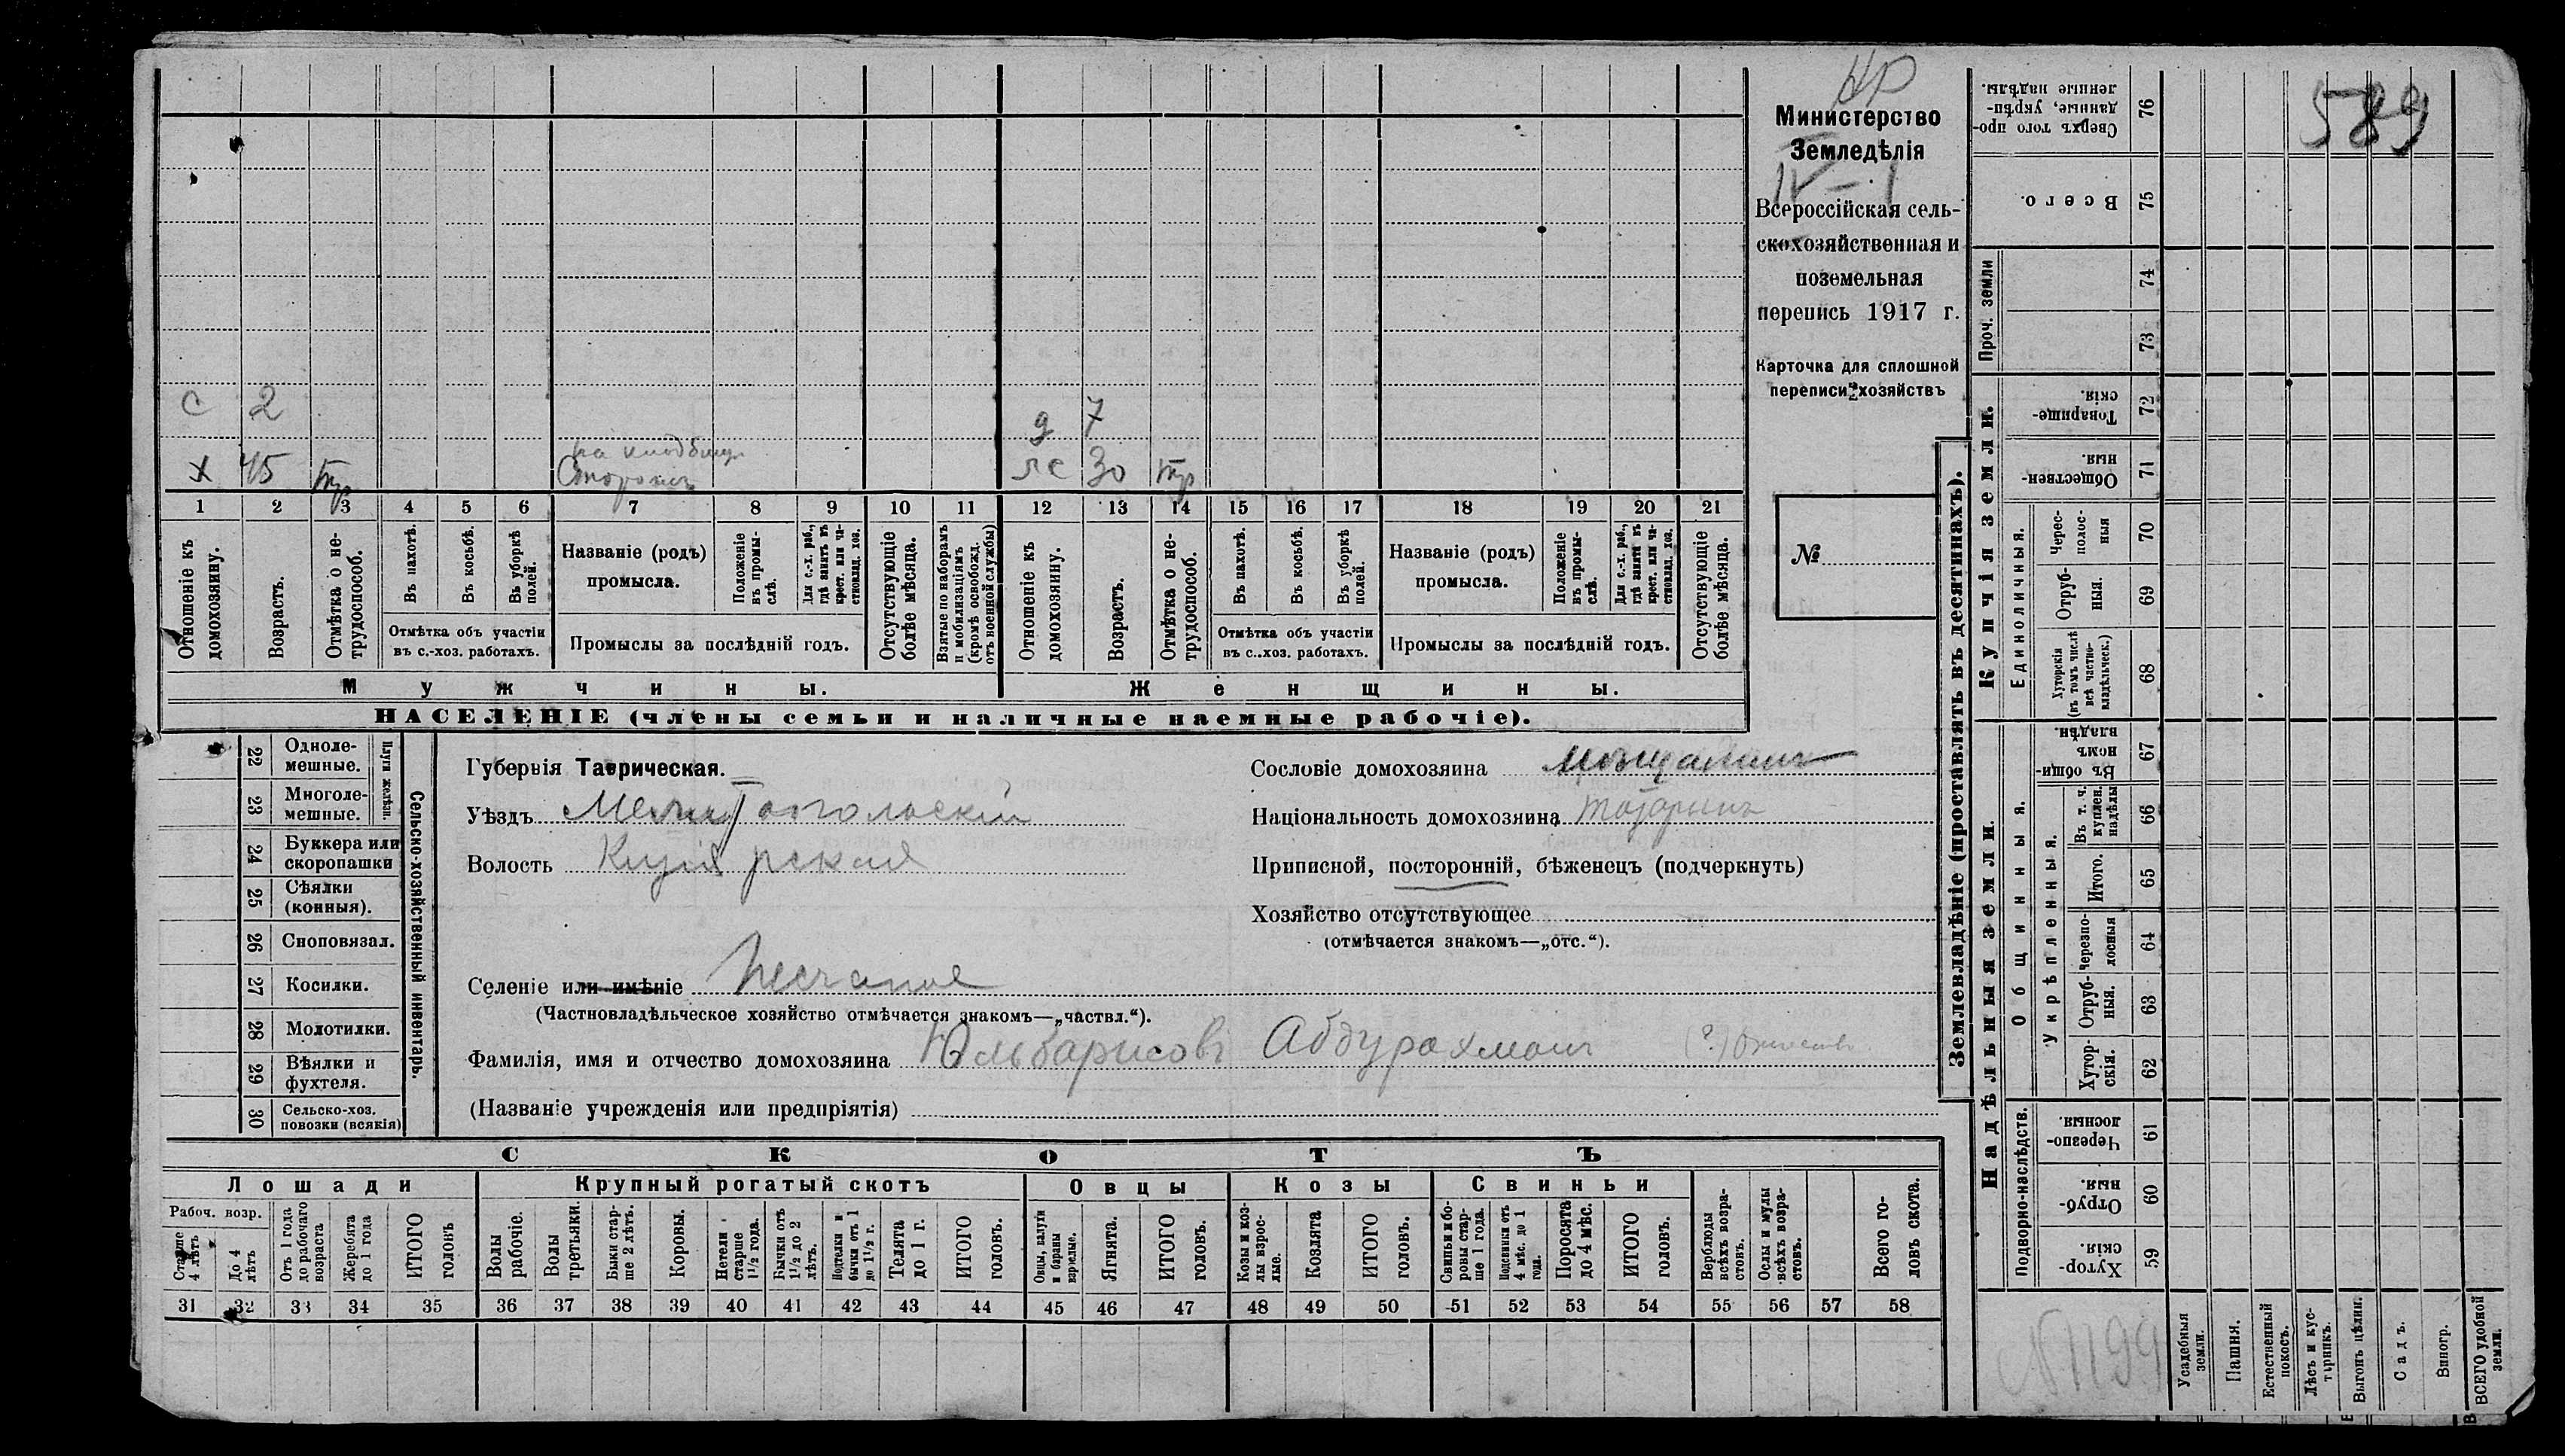 589
НР
Министерство
Земледѣлія
IV – 1
Всероссійская сель-
скохозяйственная и
поземельная
перепись 1917 г.
Карточка для сплошной
переписи хозяйствъ
№
с 2
д 7
х 45 тр
на кладбищ
Сторожъ
ж 30 тр
1 2 3 4 5 6 7 8 9 10 11 12 13 14 15 16 17 18 19 20 21
Отношеніе къ домохозяину.
Возрастъ.
Отмѣтка о не-трудоспособ.
Въ пахотѣ.
Въ косьбѣ.
Въ уборкѣ полей.
Отмѣтка объ участіи
въ с.-хоз. работахъ.
Названіе (родъ)
промысла.
Положеніе въ промы-слѣ.
Для с.-х. раб., гдѣ занятъ въ крест. или ча-стновлад. хоз.
Промыслы за послѣдній годъ.
Отсутствующіе болѣе мѣсяца.
Взятые по наборамъ и мобилизаціямъ (кромѣ освобожд. отъ военной службы)
Отношеніе къ домохозяину.
Возрастъ.
Отмѣтка о не-трудоспособ.
Въ пахотѣ.
Въ косьбѣ.
Въ уборкѣ полей.
Отмѣтка объ участіи
въ с.-хоз. работахъ.
Названіе (родъ)
промысла.
Положеніе въ промы-слѣ.
Для с.-х. раб., гдѣ занятъ въ крест. или ча-стновлад. хоз.
Промыслы за послѣдній годъ.
Отсутствующіе болѣе мѣсяца.
Мужчины.
Женщины.
НАСЕЛЕНІЕ (члены семьи и наличные наемные рабочіе).
Сельско-хозяйственный инвентарь.
Плуги желѣзн.
22 Одноле-мешные.
23 Многоле-мешные.
24 Буккера или скоропашки
25 Сѣялки (конныя).
26 Сноповязал.
27 Косилки.
28 Молотилки.
29 Вѣялки и фухтеля.
30 Сельско-хоз. повозки (всякія)
Губернія Таврическая.
Уѣздъ Мелитопольскій
Волость Кизіярская
Сословіе домохозяина мѣщанинъ
Національность домохозяина татаринъ
Приписной, посторонній, бѣженецъ (подчеркнуть)
Хозяйство отсутствующее
(отмѣчается знакомъ—„отс.“).
Селеніе или имѣніе Песчаное
(Частновладѣльческое хозяйство отмѣчается знакомъ—„частвл.“).
Фамилія, имя и отчество домохозяина Юльбарисовъ Абдурахманъ (?) Отчество
(Названіе учрежденія или предпріятія)
СКОТЪ
Лошади
Крупный рогатый скотъ
Овцы
Козы
Свиньи
Рабоч. возр.
Старше 4 лѣтъ
До 4 лѣтъ
Отъ 1 года до рабочаго возраста
Жеребята до 1 года
ИТОГО головъ
Волы рабочіе.
Волы третьяки.
Быки стар-ше 2 лѣтъ.
Коровы.
Нетели старше 1½ года.
Бычки отъ 1½ до 2 лѣтъ.
Подтелки и бычки отъ 1 до 1½ г.
Телята до 1 г.
ИТОГО головъ.
Овцы, валухи и бараны взрослые.
Ягнята.
ИТОГО головъ.
Козы и коз-лы взрос-лые.
Козлята
ИТОГО головъ.
Свиньи и бо-ровы стар-ше 1 года.
Подсвинки отъ 4 мѣс. до 1 года.
Поросята до 4 мѣс.
ИТОГО головъ.
Верблюды всѣхъ возра-стовъ.
Ослы и мулы всѣхъ возра-стовъ.
Всего го-ловъ скота.
31 32 33 34 35 36 37 38 39 40 41 42 43 44 45 46 47 48 49 50 51 52 53 54 55 56 57 58
Землевладѣніе (проставлять въ десятинахъ).
Купчія земли.
Надѣльныя земли.
Сверхъ того про-данные, укрѣп-ленные надѣлы. 76
Всего. 75
Проч. земли
74
73
Товарище-скія. 72
Обществен-ныя. 71
Единоличныя.
Черес-полос-ныя 70
Отруб-ныя. 69
Хуторскія (въ томъ числѣ всѣ частно-владѣльческ.) 68
Общинныя.
Въ общи-номъ владѣн. 67
Укрѣпленныя.
Въ т. ч. куплен. надѣлы 66
Итого. 65
Черезпо-лосныя 64
Отруб-ныя. 63
Хутор-скія. 62
Подворно-наслѣдств.
Черезпо-лосныя. 61
Отруб-ныя. 60
Хутор-скія. 59
№1199
Усадебныя земли.
Пашня.
Естественный покосъ.
Лѣсъ и кус-тарникъ.
Выгонъ цѣлин.
Садъ.
Виногр.
ВСЕГО удобной земли.